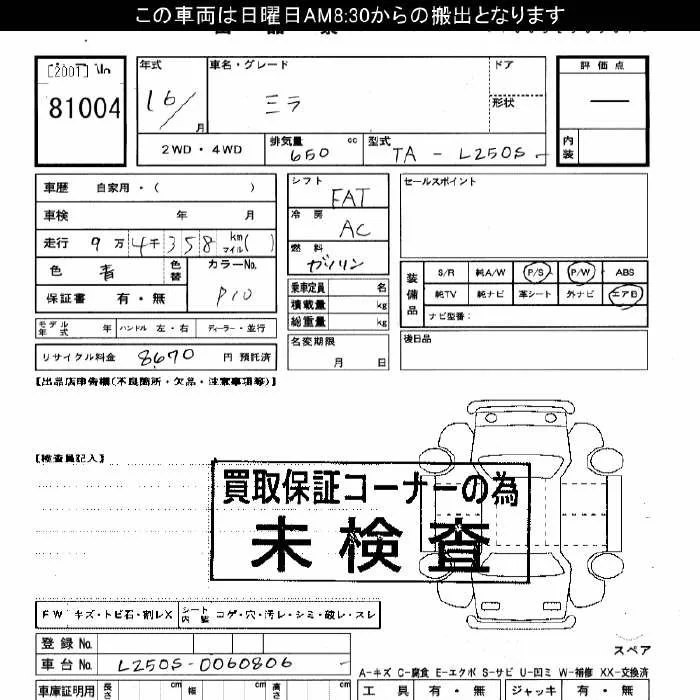 この車両は日曜日AM8:30からの搬出となります
81004
年式
16/
月
車名・グレード
ミラ
ドア
形状
評価点
内装
2WD・4WD
排気量 cc
650
型式
TA - L250S
車歴 自家用・( )
車検 年 月
走行 9万4千358 km マイル( )
色 青 色替
カラーNo.
P10
保証書 有・無
モデル年式 年 ハンドル 左・右 ディーラー・並行
リサイクル料金 8670 円 預託済
シフト
FAT
冷房
AC
燃料
ガソリン
乗車定員 名
積載量 kg
総重量 kg
名変期限
月 日
セールスポイント
装備品
S/R 純A/W P/S P/W ABS
純TV 純ナビ 革シート 外ナビ エアB
ナビ型番:
後日品
【出品店申告欄(不良箇所・欠品・注意事項等)】
【検査員記入】
買取保証コーナーの為
未検査
FW キズ・トビ石・割レX シート内装 コゲ・穴・汚レ・シミ・破レ・スレ
登録No.
車台No. L250S-0060806
スペア
A-キズ C-腐食 E-エクボ S-サビ U-凹ミ W-補修 XX-交換済
車庫証明用 長さ cm 幅 cm 高さ cm
工具 有・無 ジャッキ 有・無